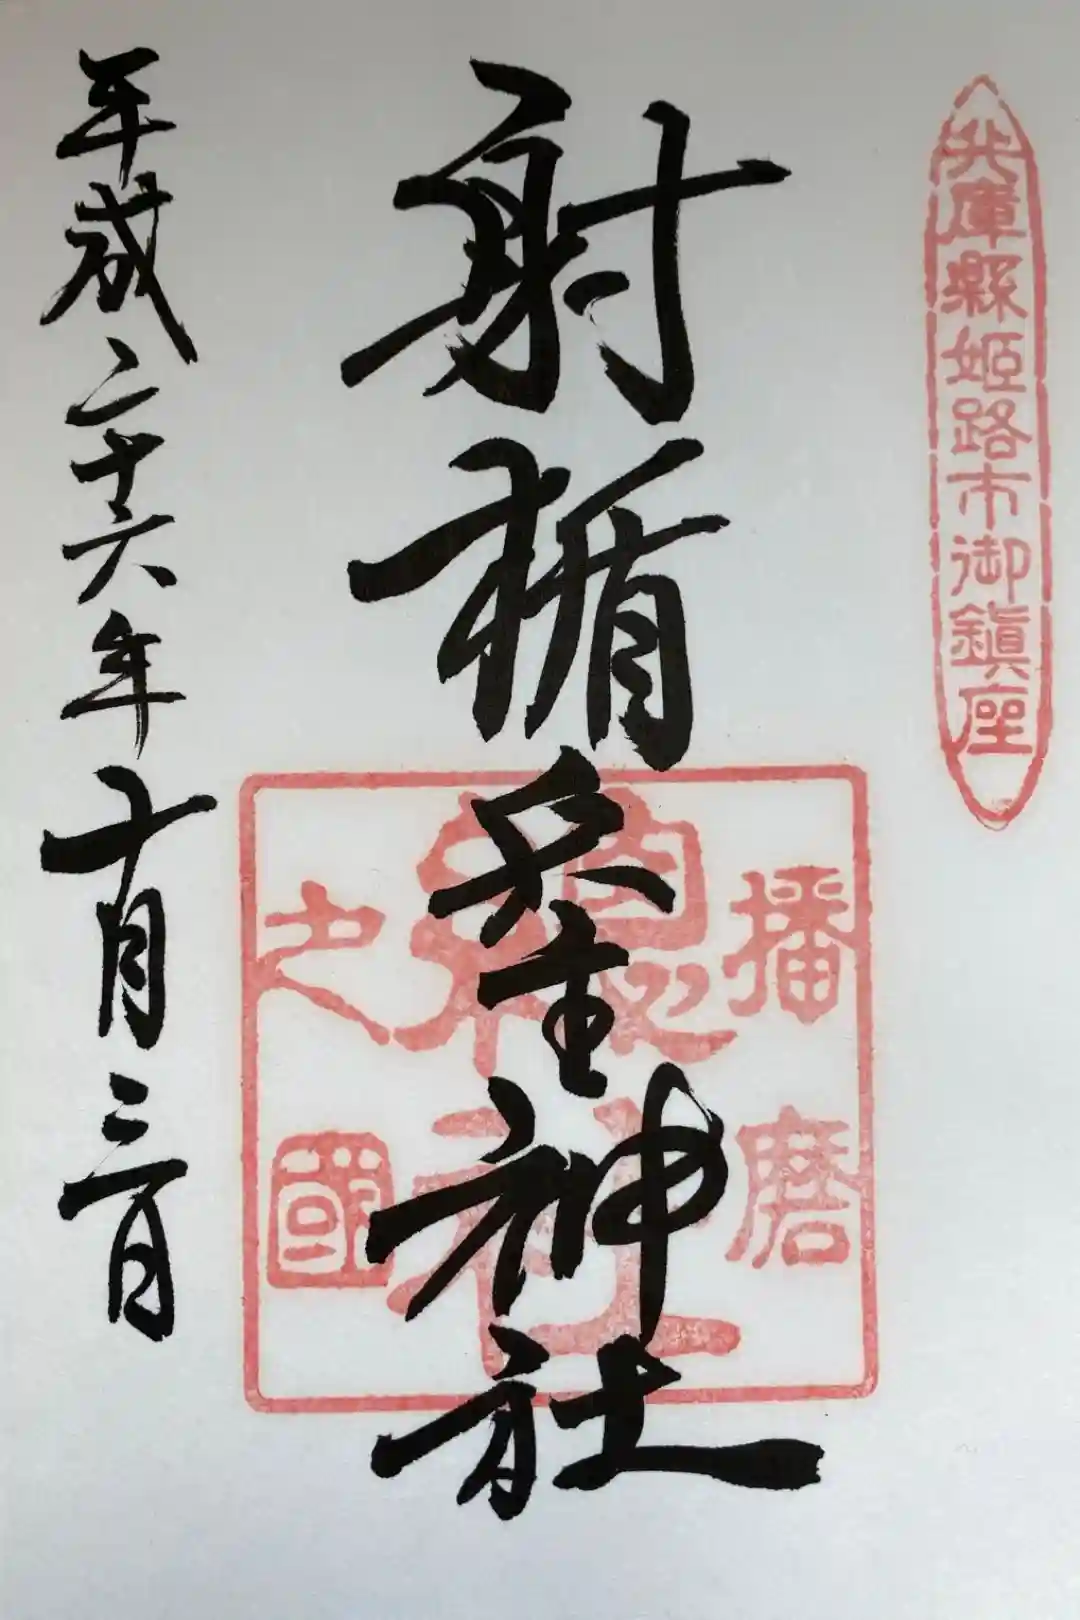 兵庫縣姫路市御鎮座
射楯兵主神社
播磨
總社
之國
平成二十六年十月三日